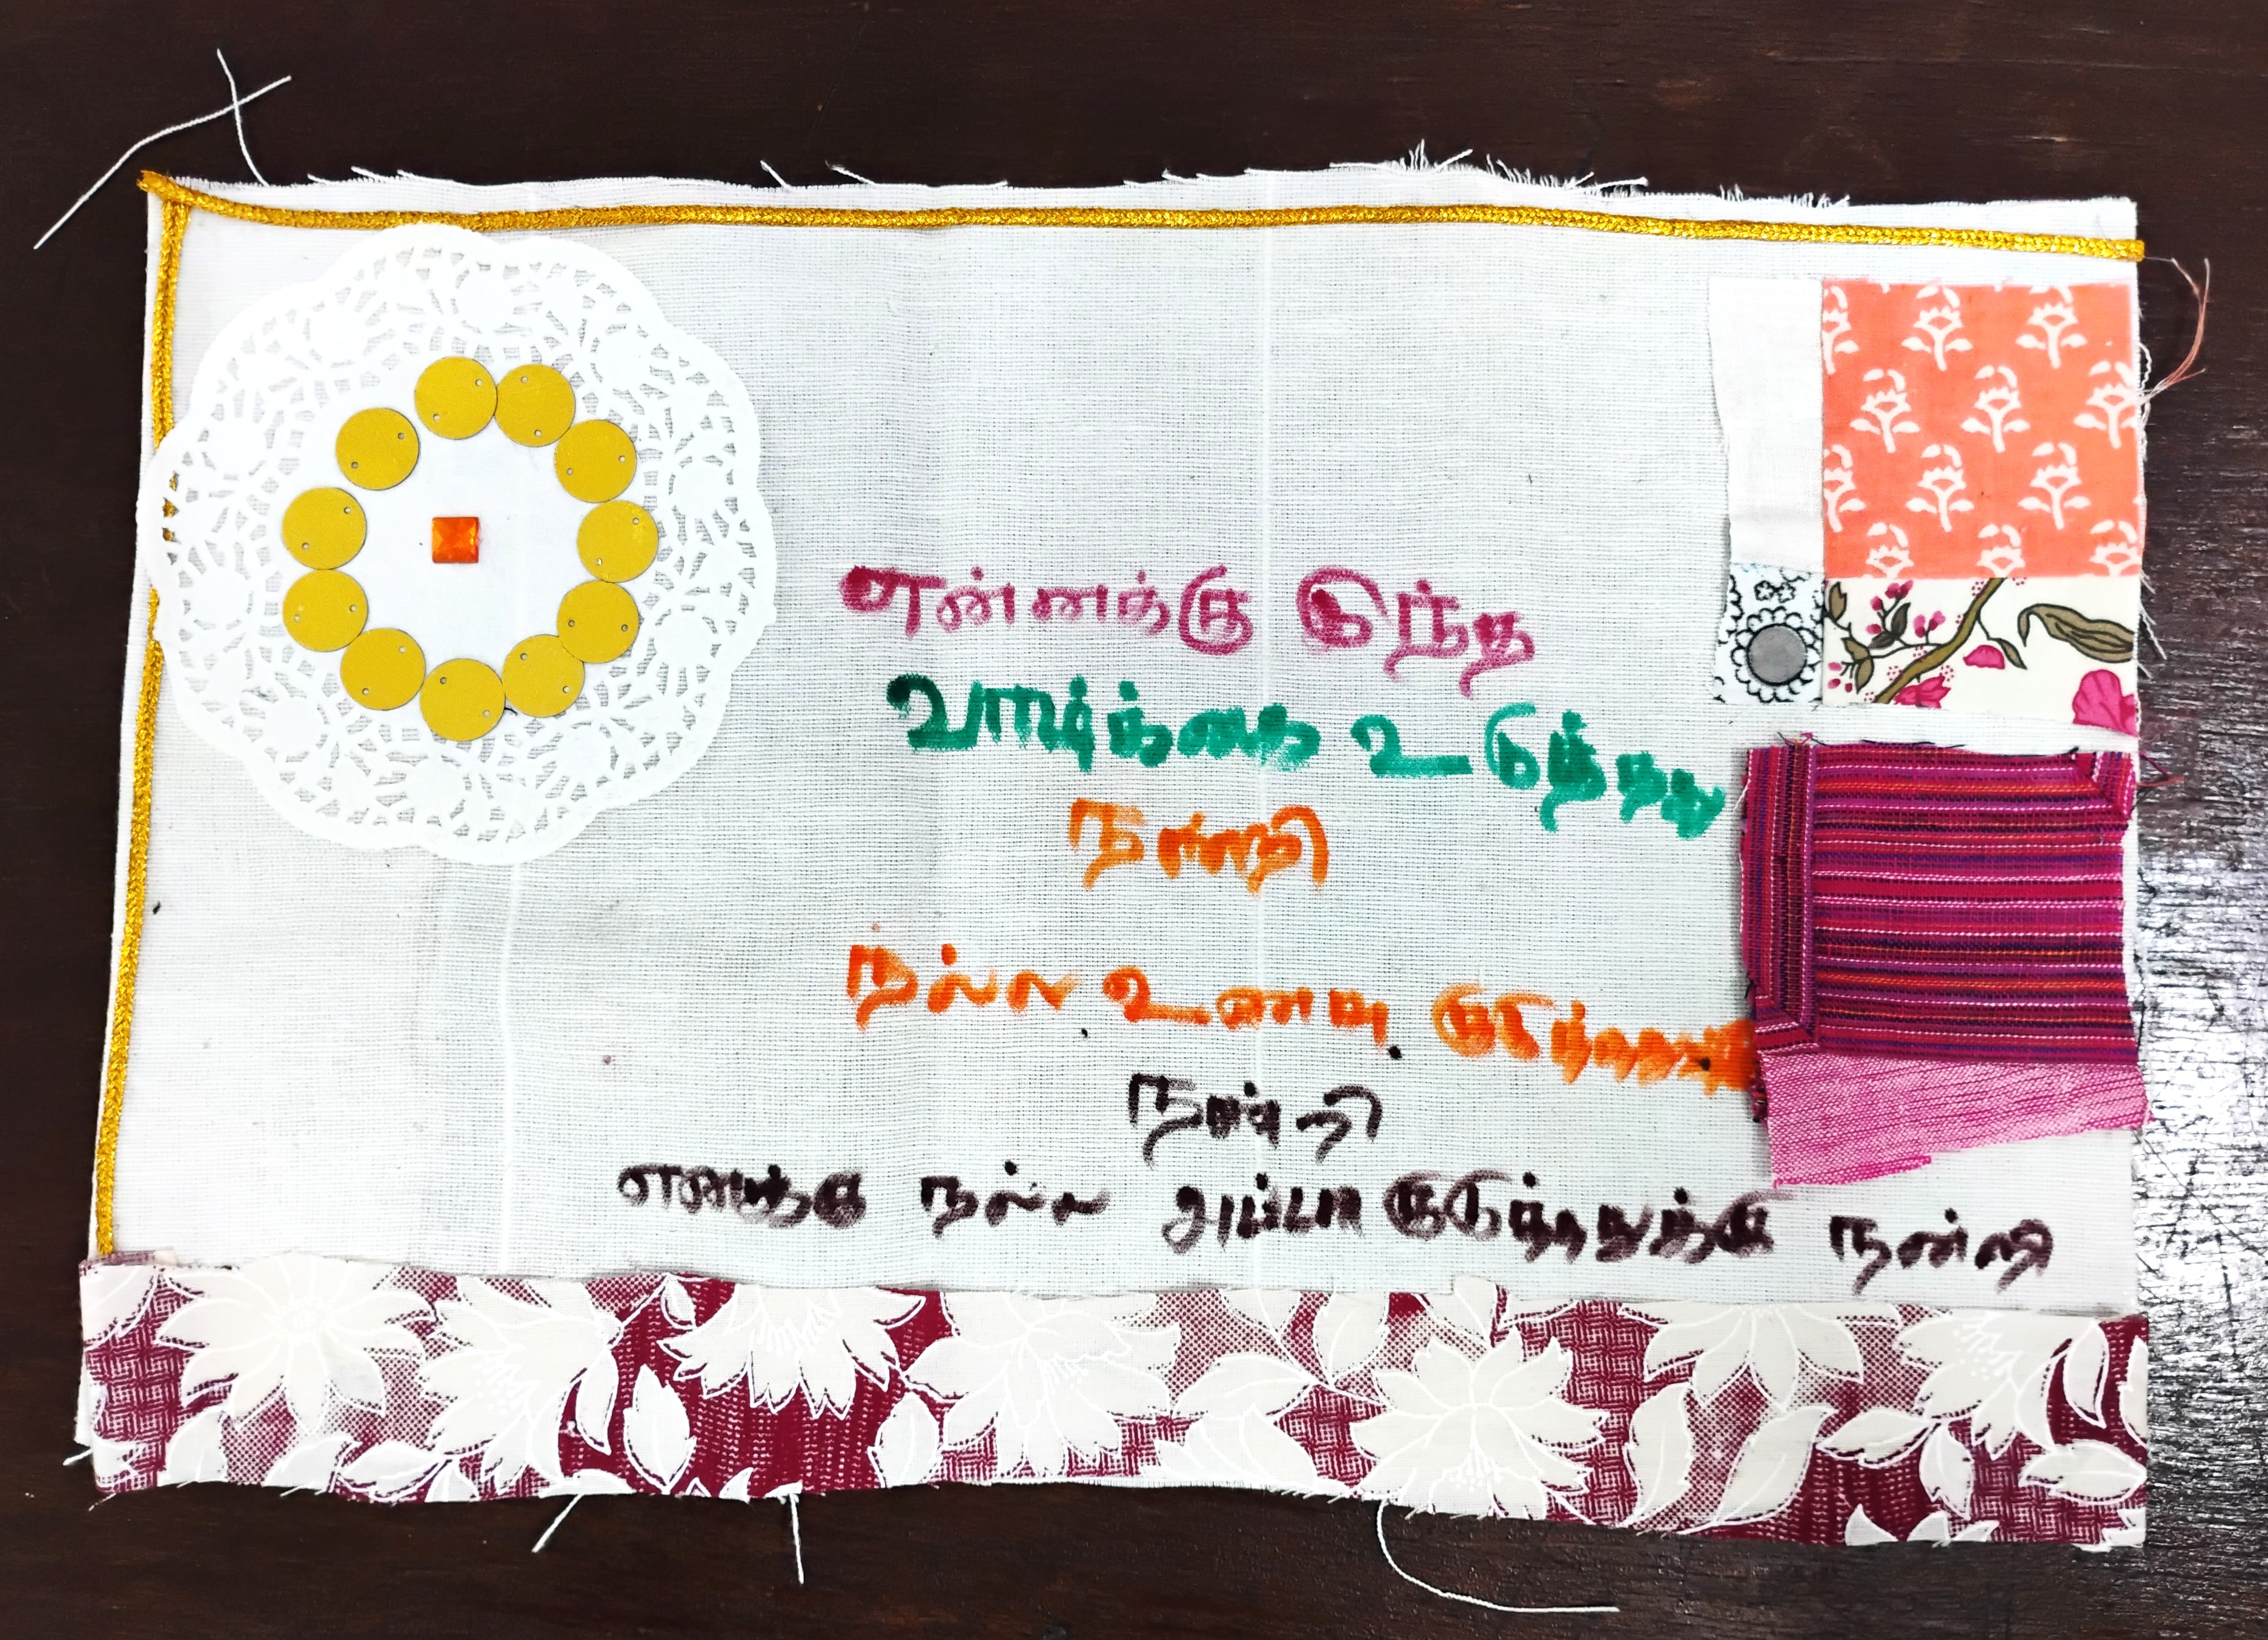 என்னக்கு இந்த
வாழ்க்கை
நன்றி
நல்ல உணவு
நன்றி
எனக்கு நல்ல அப்பா குடுத்ததுக்கு நன்றி